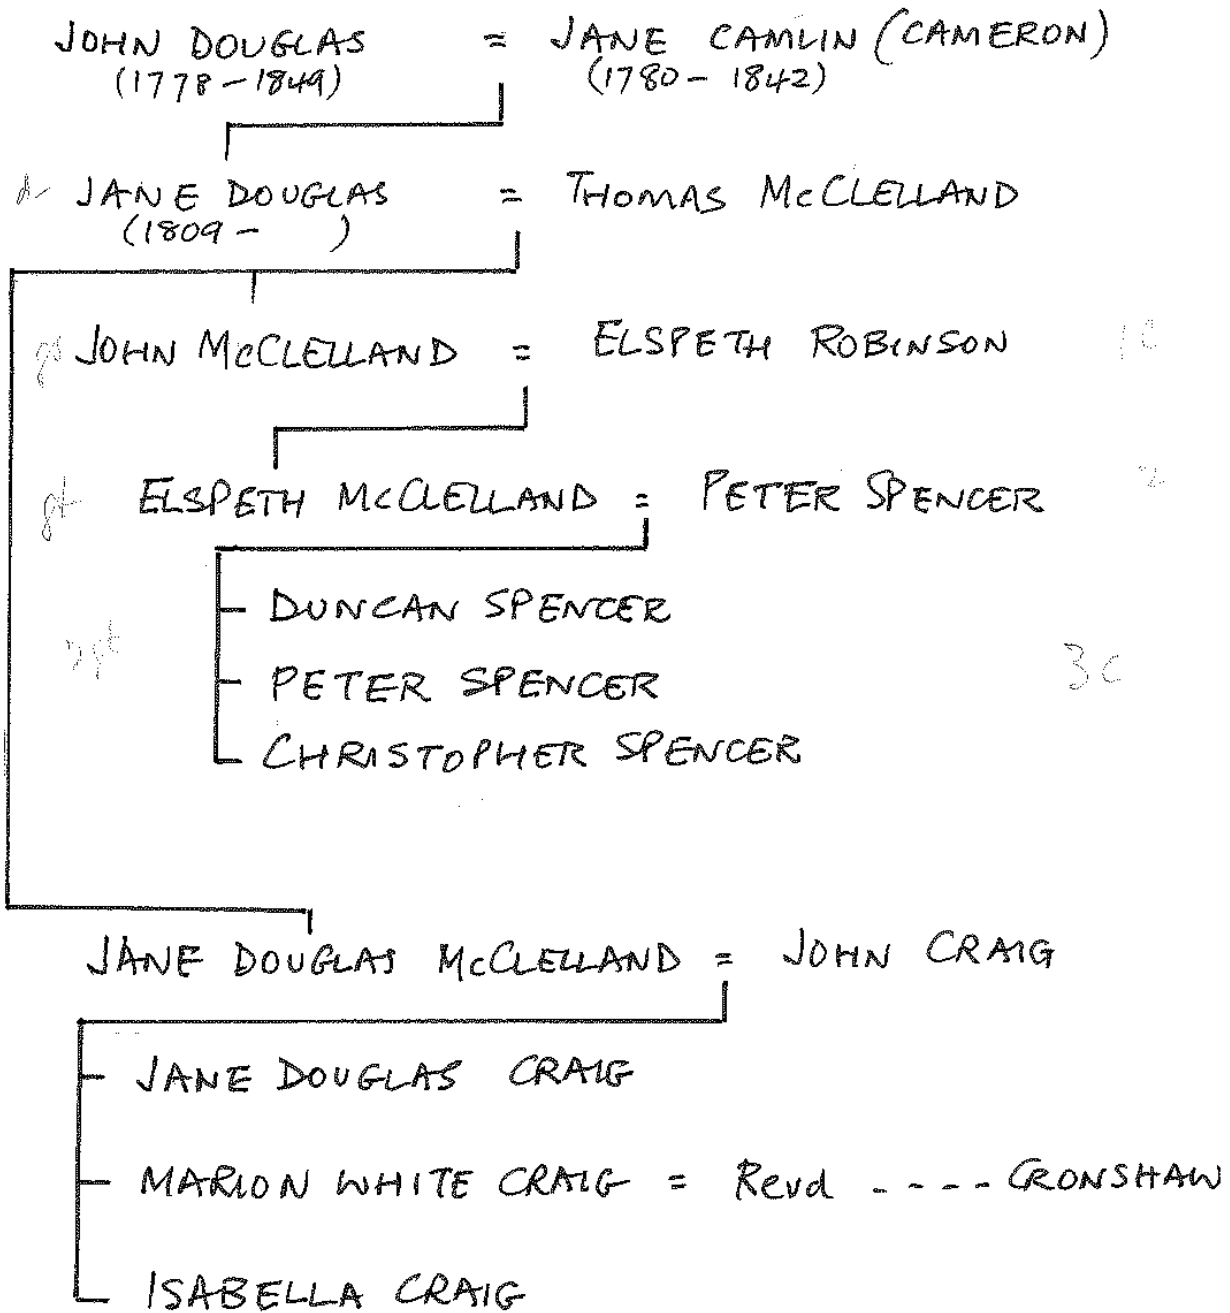 JOHN DOUGLAS = JANE CAMLIN (CAMERON)
(1778 - 1849) (1780 - 1842)
JANE DOUGLAS = THOMAS McCLELLAND
(1809 - )
JOHN McCLELLAND = ELSPETH ROBINSON 1C
ELSPETH McCLELLAND = PETER SPENCER 2
DUNCAN SPENCER
3C
PETER SPENCER
CHRISTOPHER SPENCER
JANE DOUGLAS McCLELLAND = JOHN CRAIG
JANE DOUGLAS CRAIG
MARION WHITE CRAIG = Revd - - - - CRONSHAW
ISABELLA CRAIG